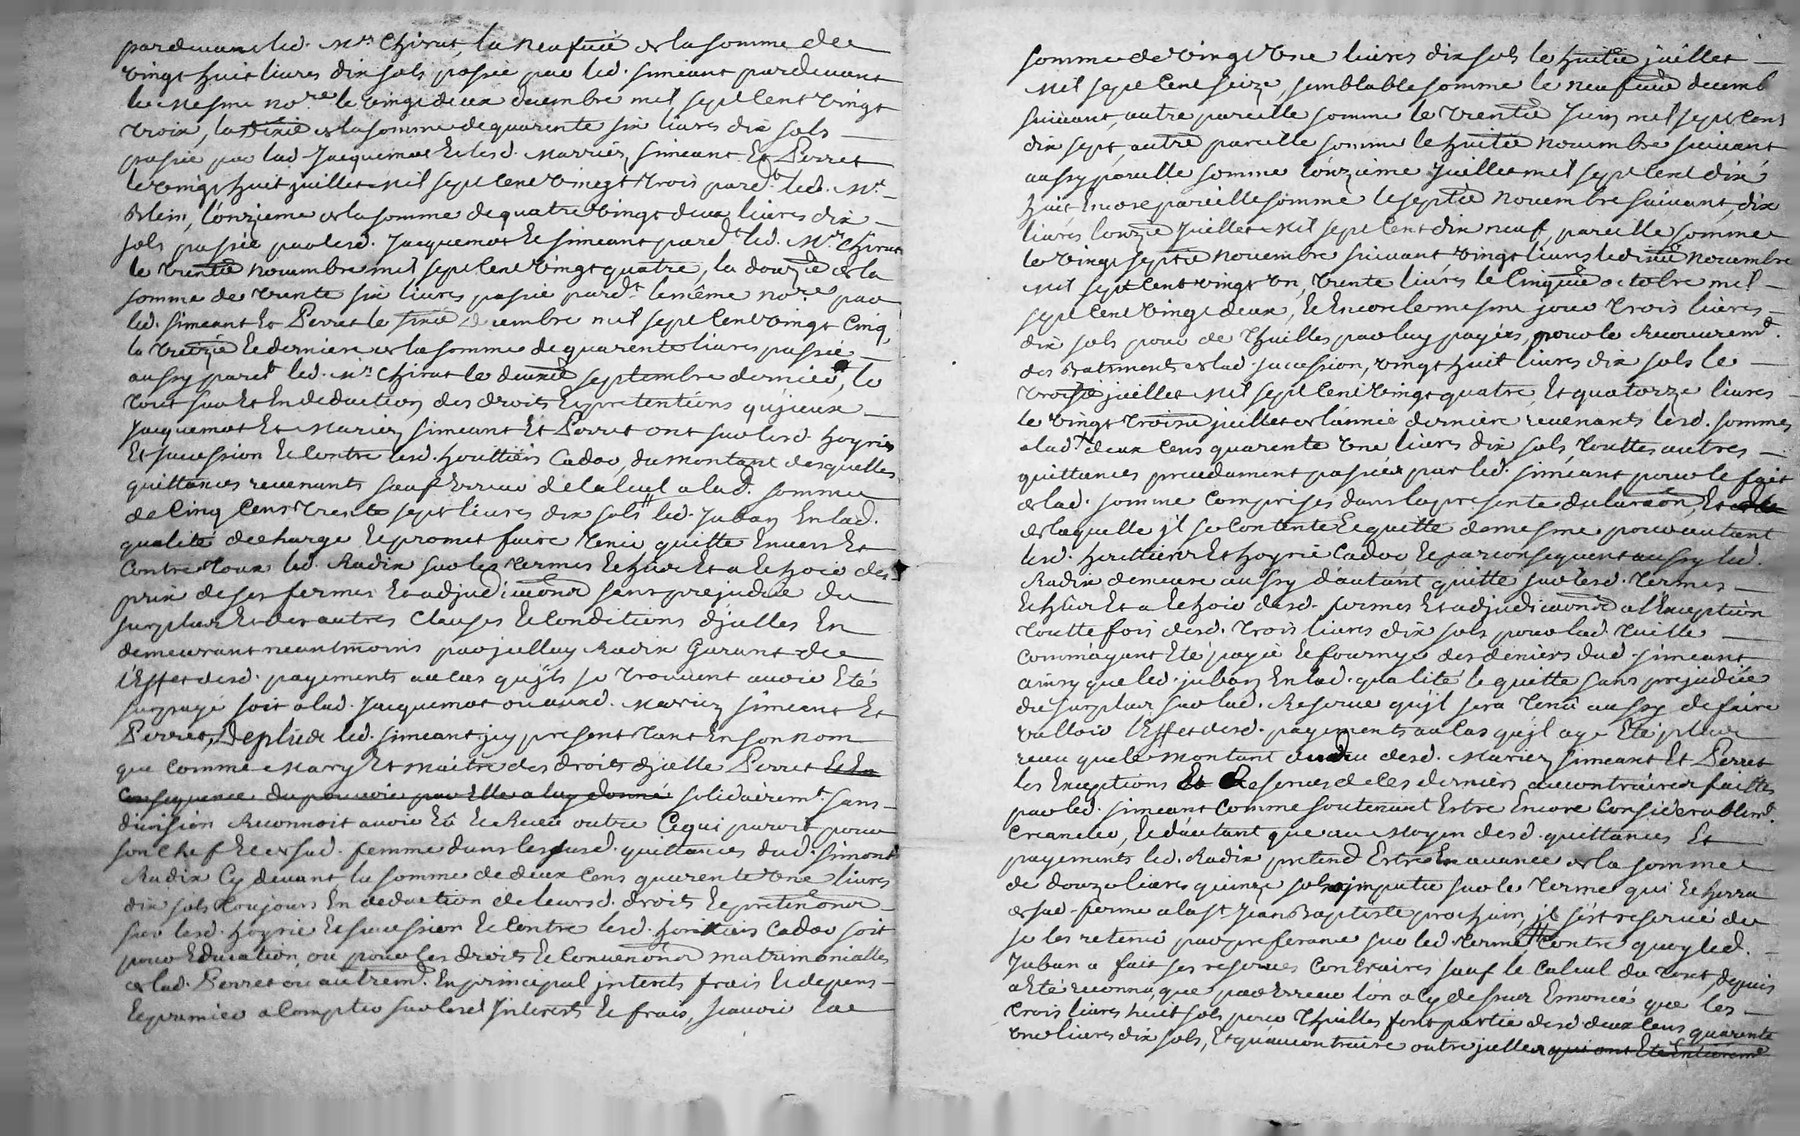 pardevant led. Mre Chirat, la neufvie de la somme de
vingt huit livres dix sols passée par led. simeant pardevant
le mesme nore le vingt deux decembre mil sept cent vingt
trois, la dixie de la somme de quarente six livres dix sols
passée par lad. Jacquemat et lesd. marriéz simeant et Perret
le vingt huit juillet mil sept cent vingt trois pard.t led. Mre
Blein, l'onzieme de la somme de quatre vingt deux livres dix
sols passée par lesd. Jacquemat et simeant pard.t led. Mre Chirat
le trentie novembre mil sept cent vingt quatre, la douzie de la
somme de trente six livres passée pard.t le même nore par
led. simeant et Perret le sixie decembre mil sept cent vingt cinq,
la treizie et derniere de la somme de quarente livres passée
aussy pard.t led. Mre Chirat le deuxie septembre dernier, le
tout sur et en deduction des droits et pretentions qu'jceux
Jacquemat et Mariez simeant et Perret ont sur lesd. hoyries
et succession et contre lesd. heritiers Cadoc, du montant desquelles
quittances revenants sauf erreur de calcul a lad. somme
de cinq cens trente sept livres dix sols led. Juban en lad.
qualité decharge et promet faire tenir quitte envers et
contre tous led. Radix sur les termes echus et a echoir des
prix de ses fermes et adjudications sans prejudice du
surplus et des autres clauses et conditions d'jcelles en
demeurant neantmoins par jcelluy Radix garant de
l'effet desd. payements au cas qu'jls se trouvent avoir eté
surpayé soit a lad. Jacquemat ou auxd. Marriez simeant et
Perret, De plus led. simeant jcy present tant en son nom
que comme mary et maitre des droits d'jcelle Perret et en
consequence du pouvoir par elle a luy donné solidairemt. sans
division reconnoit avoir eté et receu outre ce qui paroit pour
son chef et de sad. femme dans les susd. quittances dud. simont
Radix cy devant la somme de deux cens quarente une livres
dix sols toujours en deduction de leursd. droits et pretentions
sur lesd. hoyrie et succession et contre lesd. heritiers Cadoc soit
pour education, ou pour les droits et conventions matrimonialles
de lad. Perret ou autremt. en principal jnterets frais et depens
et premier a compter sur lesd. Jnterets et frais, scavoir la
somme de vingt une livres dix sols le huitie juillet
mil sept cent seize, semblable somme le neufvie decemb
suivant, autre pareille somme le trentie Juin mil sept cens
dix sept, autre pareille somme le huitie novembre suivant
aussy pareille somme l'onzieme Juillet mil sept cent dix
huit encore pareille somme le septie novembre suivant, dix
livres l'onzie Juillet mil sept cent dix neuf, pareille somme
le vingt septie novembre suivant vingt livres le dixie novembre
mil sept cent vingt un, trente livres le cinquie octobre mil
sept cent vingt deux, et encore le mesme jour trois livres
dix sols pour de thuilles par luy payées, pour le recouvremt.
des batiments de lad. succession, vingt huit livres dix sols le
troisie juillet mil sept cent vingt quatre, et quatorze livres
le vingt troisie juillet de l'année derniere revenants lesd. sommes
a lad. deux cens quarente une livres dix sols, touttes autres
quittances precedament passées par led. simeant pour le fait
de lad. somme comprises dans la presente declaraon, et de
de laquelle jl se contente et quitte de mesme pour autant
lesd. heritiers et hoyrie Cadoc et par consequent aussy led.
Radix demeure aussy d'autant quitte sur lesd. termes
echus et a echoir desd. fermes et adjudications a l'exception
touttefois desd. trois livres dix sols pour lad. tuille
comm'ayant eté payé et fournye des deniers dud. simeant
ainsy que led. juban en lad. qualité le quitte sans prejudice
du surplus sur lad. reserve qu'jl sera tenu aussy de faire
valloir l'effet desd. payements au cas qu'jl aye eté plus
receu que le montant du deu desd. Mariez simeant et Perret
les exceptions et reserves de ces derniers au contraires faittes
par led. simeant comme soutenant estre encore considerablemt.
creancier, et d'autant que au moyen desd. quittances et
payements led. Radix pretend estre en avance de la somme
de douze livres quinze sols a jmputer sur le terme qui echerra
de sad. ferme a la st. Jean Baptiste prochain, jl s'est reservé de
se les retenir par preferance sur led. terme contre quoy led.
Juban a fait ses reserves contraires sauf le calcul du tout depuis
a eté reconnu, que par erreur l'on a cy dessus enoncé que les
trois livres huit sols pour thuilles font partie desd. deux cens quarente
une livres dix sols, et qu'au contraire outre jcelles qui ont eté entieremt